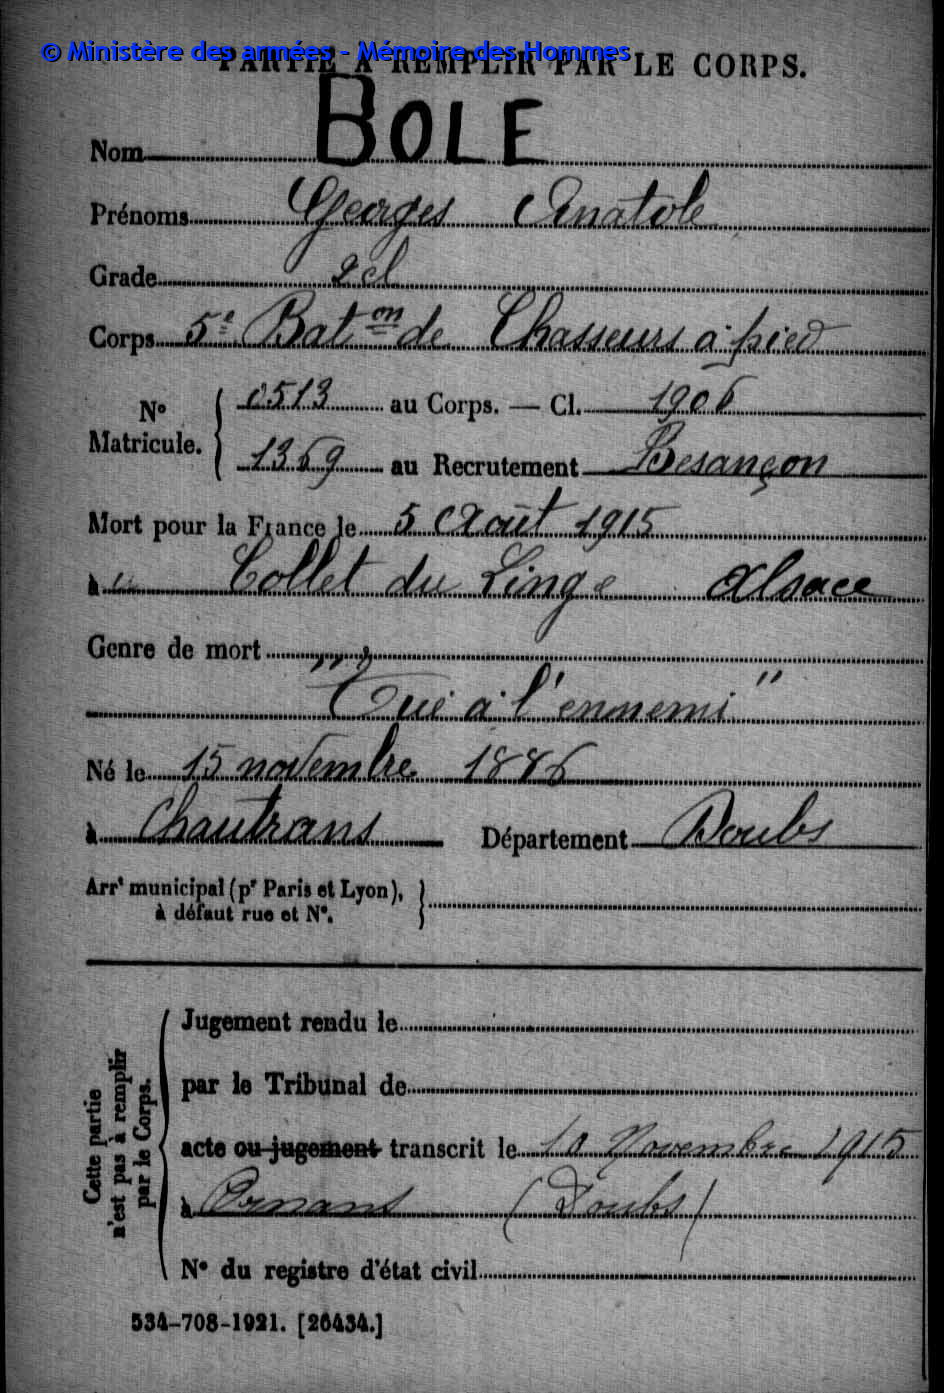 © Ministère des armées - Mémoire des Hommes
PARTIE A REMPLIR PAR LE CORPS.
Nom BOLE
Prénoms Georges Anatole
Grade 2 cl
Corps 5e Baton de Chasseurs à pied
No Matricule. { 0513 au Corps. — Cl. 1906
1369 au Recrutement Besançon
Mort pour la France le 5 Août 1915
à Collet du Linge Alsace
Genre de mort
"Tué à l'ennemi"
Né le 15 novembre 1886
à Chautrans Département Doubs
Arrt municipal (pr Paris et Lyon),
à défaut rue et No.
Cette partie
n'est pas à remplir
par le Corps.
Jugement rendu le
par le Tribunal de
acte ou jugement transcrit le 10 Novembre 1915
à Ornans (Doubs)
No du registre d'état civil
534-708-1921. [26434.]